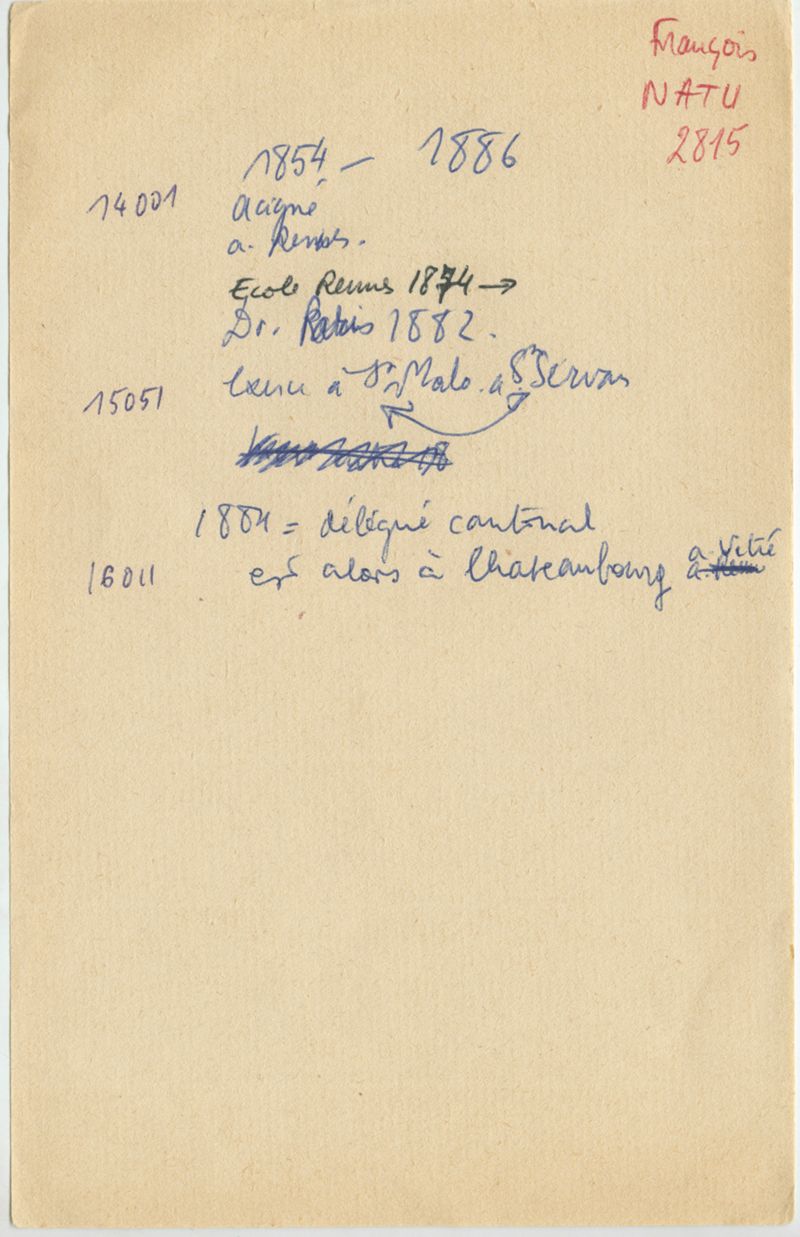 François
NATU
2815
1854 - 1886
14001 Acigné
a. Rennes.
Ecole Rennes 1874 →
Dr. Paris 1882.
15051 Exerce à St Malo. a. St Servan
1884 = délégué cantonal
a. Vitré
16011 est alors à Chateaubourg